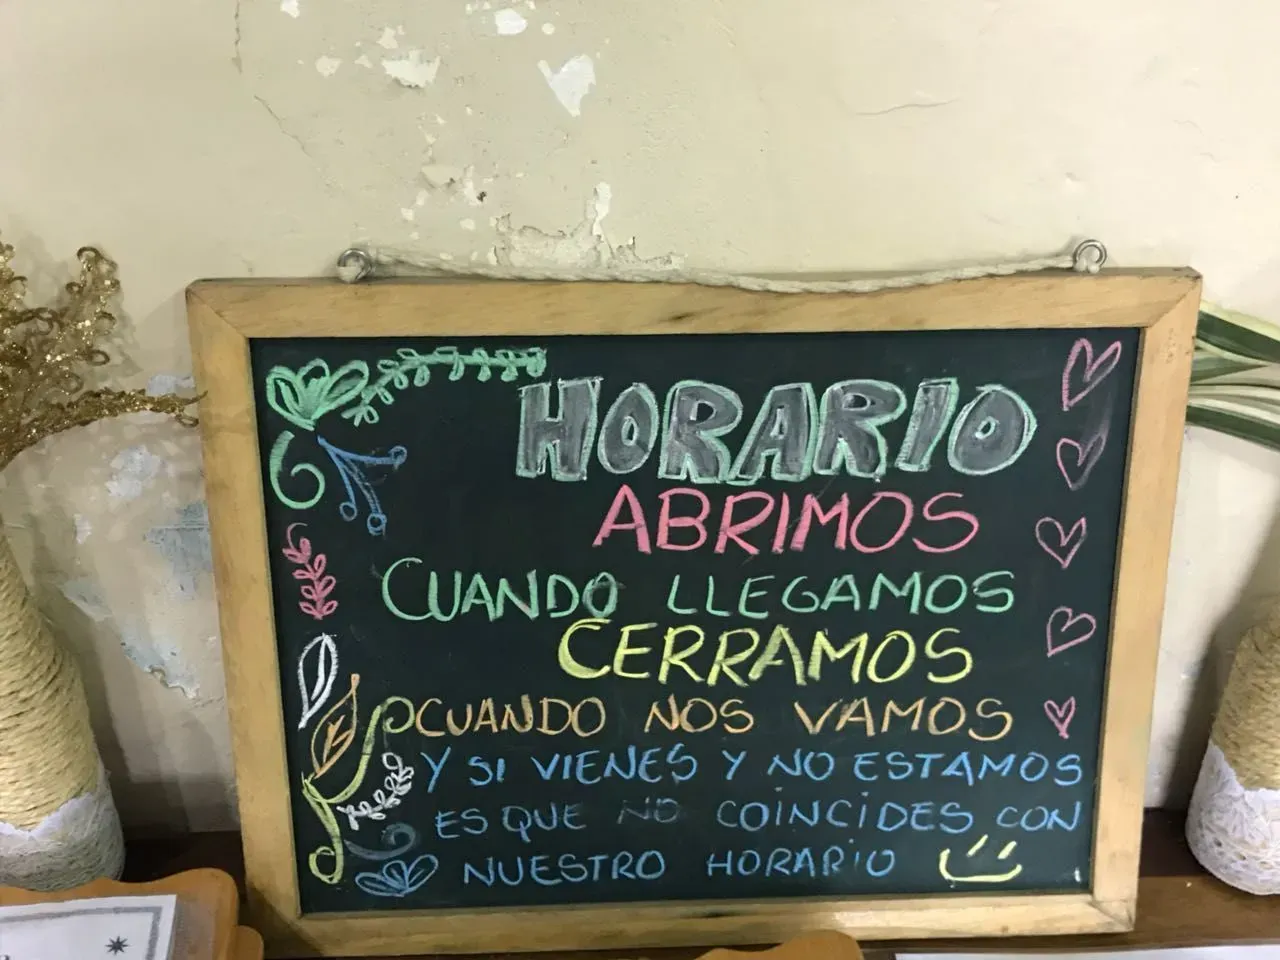 HORARIO
ABRIMOS
CUANDO LLEGAMOS
CERRAMOS
CUANDO NOS VAMOS
Y SI VIENES Y NO ESTAMOS
ES QUE NO COINCIDES CON
NUESTRO HORARIO